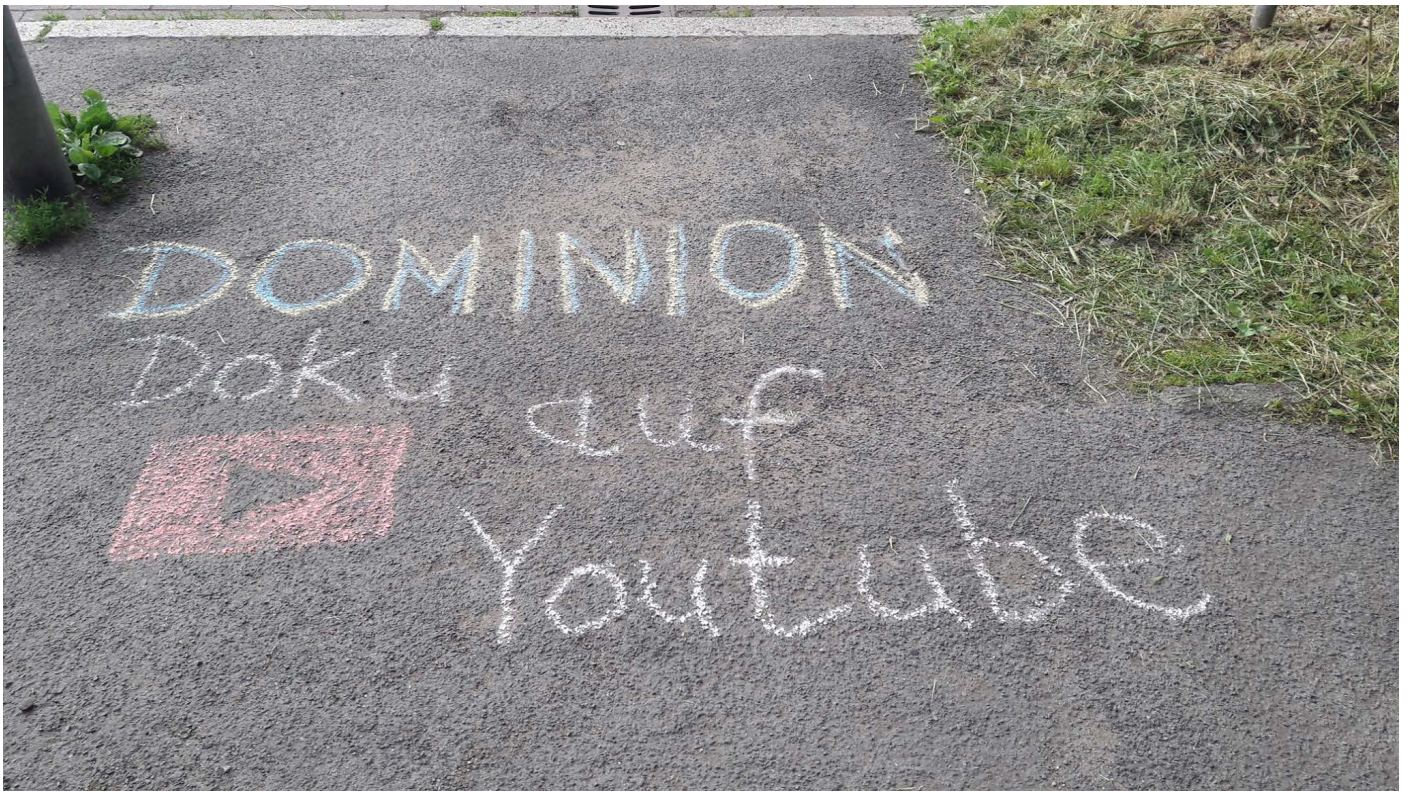 DOMINION
Doku auf
Youtube